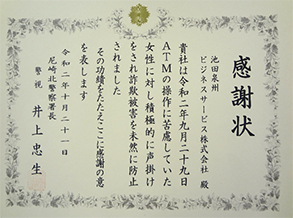 感謝状
池田泉州
ビジネスサービス株式会社 殿
貴社は令和二年九月二十九日
ATMの操作に苦慮していた
女性に対し積極的に声掛け
をされ詐欺被害を未然に防止
されました
その功績をたたえここに感謝の意
を表します
令和二年十月二十一日
尼崎北警察署長
警視 井上忠生